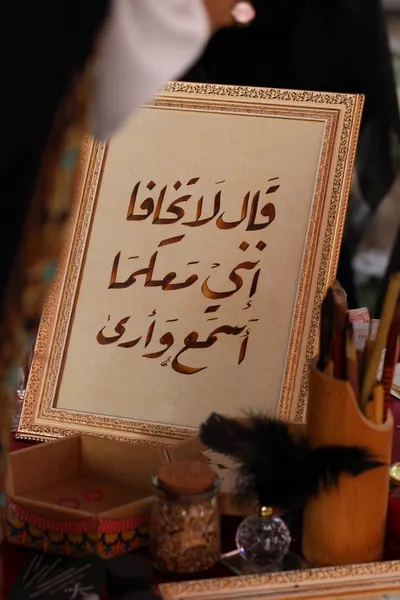 قَالَ لَا تَخَافَا
إِنَّنِي مَعَكُمَا
أَسْمَعُ وَأَرَىٰ